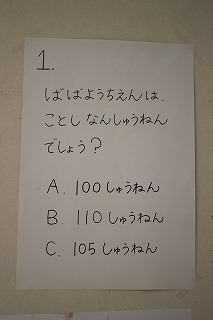 1.
ばばようちえんは、
ことし なんしゅうねん
でしょう？
A. 100しゅうねん
B. 110しゅうねん
C. 105しゅうねん